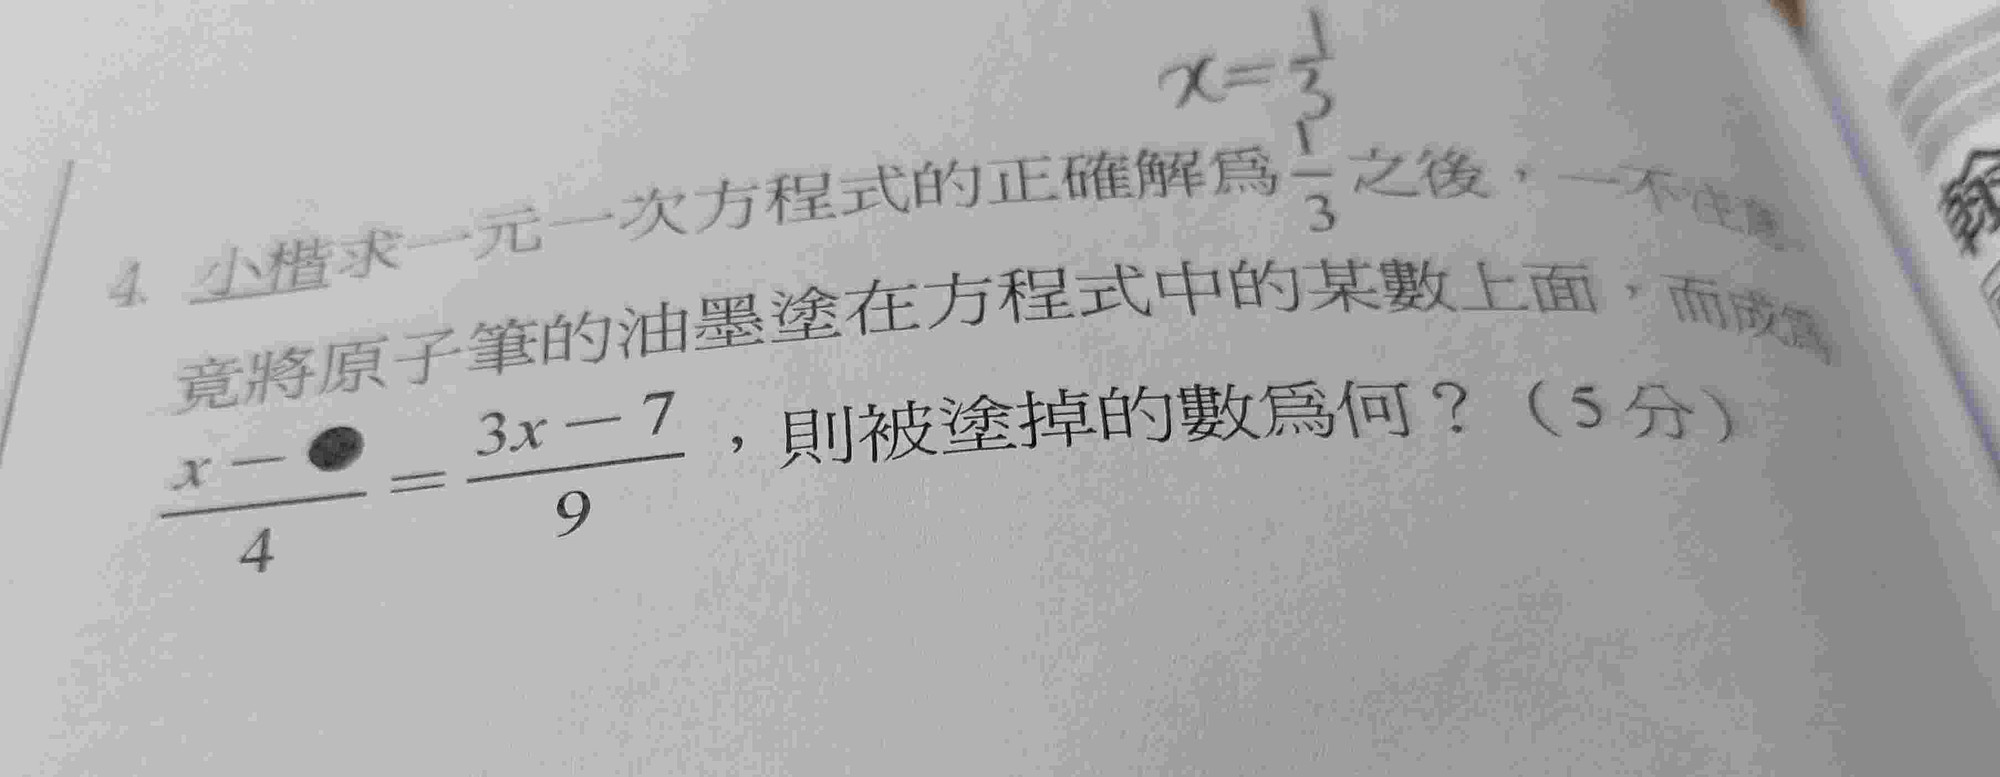 x=1/3
4. 小楷求一元一次方程式的正確解為1/3之後，一不注意
竟將原子筆的油墨塗在方程式中的某數上面，而成為
(x-●)/4=(3x-7)/9，則被塗掉的數為何？（5分）